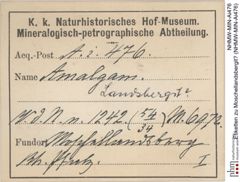 K. k. Naturhistorisches Hof-Museum.
Mineralogisch-petrographische Abtheilung.
Acq.-Post A. i. 476.
Name Amalgam.
Landsbergit
W. d. N. n. 1242 (54/34) M. 6972
Fundort Moschellandsberg
I
NHMW-MIN-AI476
Etiketten zu Moschellandsbergit? (NHMW-MIN-AI476)
nhm